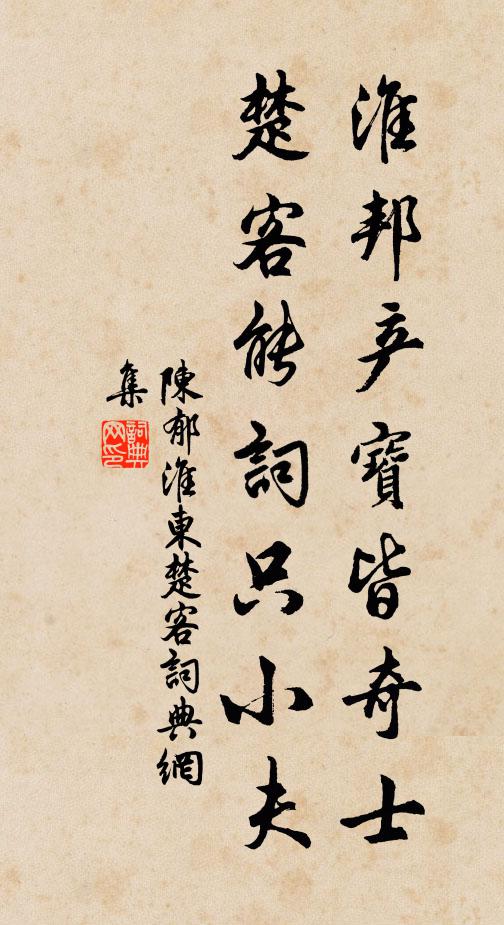 淮邦产寶皆奇士
楚客能詞只小夫
陳郁淮東楚客詞典網
集
詞典
网印